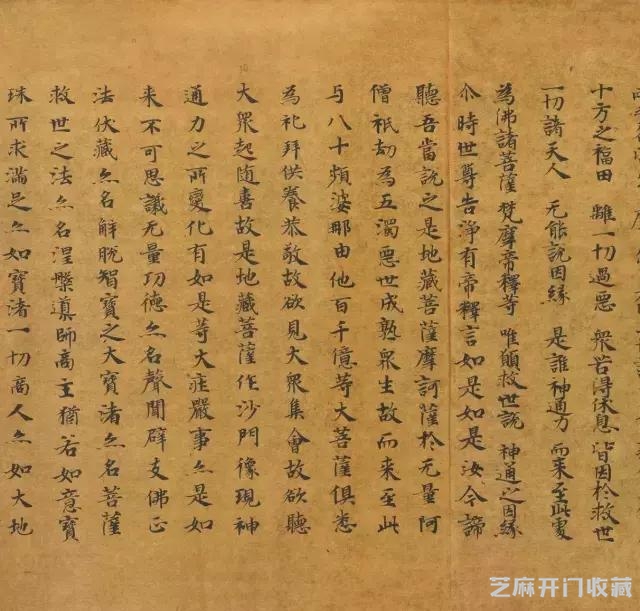 十方之福田 離一切過惡 衆苦得休息 皆因於救世
一切諸天人 无能說因緣 是誰神通力 而来至此處
為佛諸菩薩 梵摩帝釋等 唯願救世說 神通之因緣
尒時世尊告淨有帝釋言如是如是汝今諦
聽吾當說之是地藏菩薩摩訶薩於无量阿
僧祇劫為五濁惡世成熟衆生故而来至此
与八十頻婆那由他百千億等大菩薩俱悉
為礼拜供養恭敬故欲見大衆集會故欲聽
大衆起随喜故是地藏菩薩作沙門像現神
通力之所變化有如是等大莊嚴事亦是如
来不可思議无量功德亦名聲聞辟支佛正
法伏藏亦名解脫智寶之大寶渚亦名菩薩
救世之法亦名涅槃導師商主猶若如意寶
珠所求滿足亦如寶渚一切商人亦如大地
芝麻开门收藏